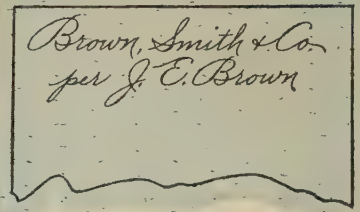 Brown, Smith & Co.
per J. E. Brown